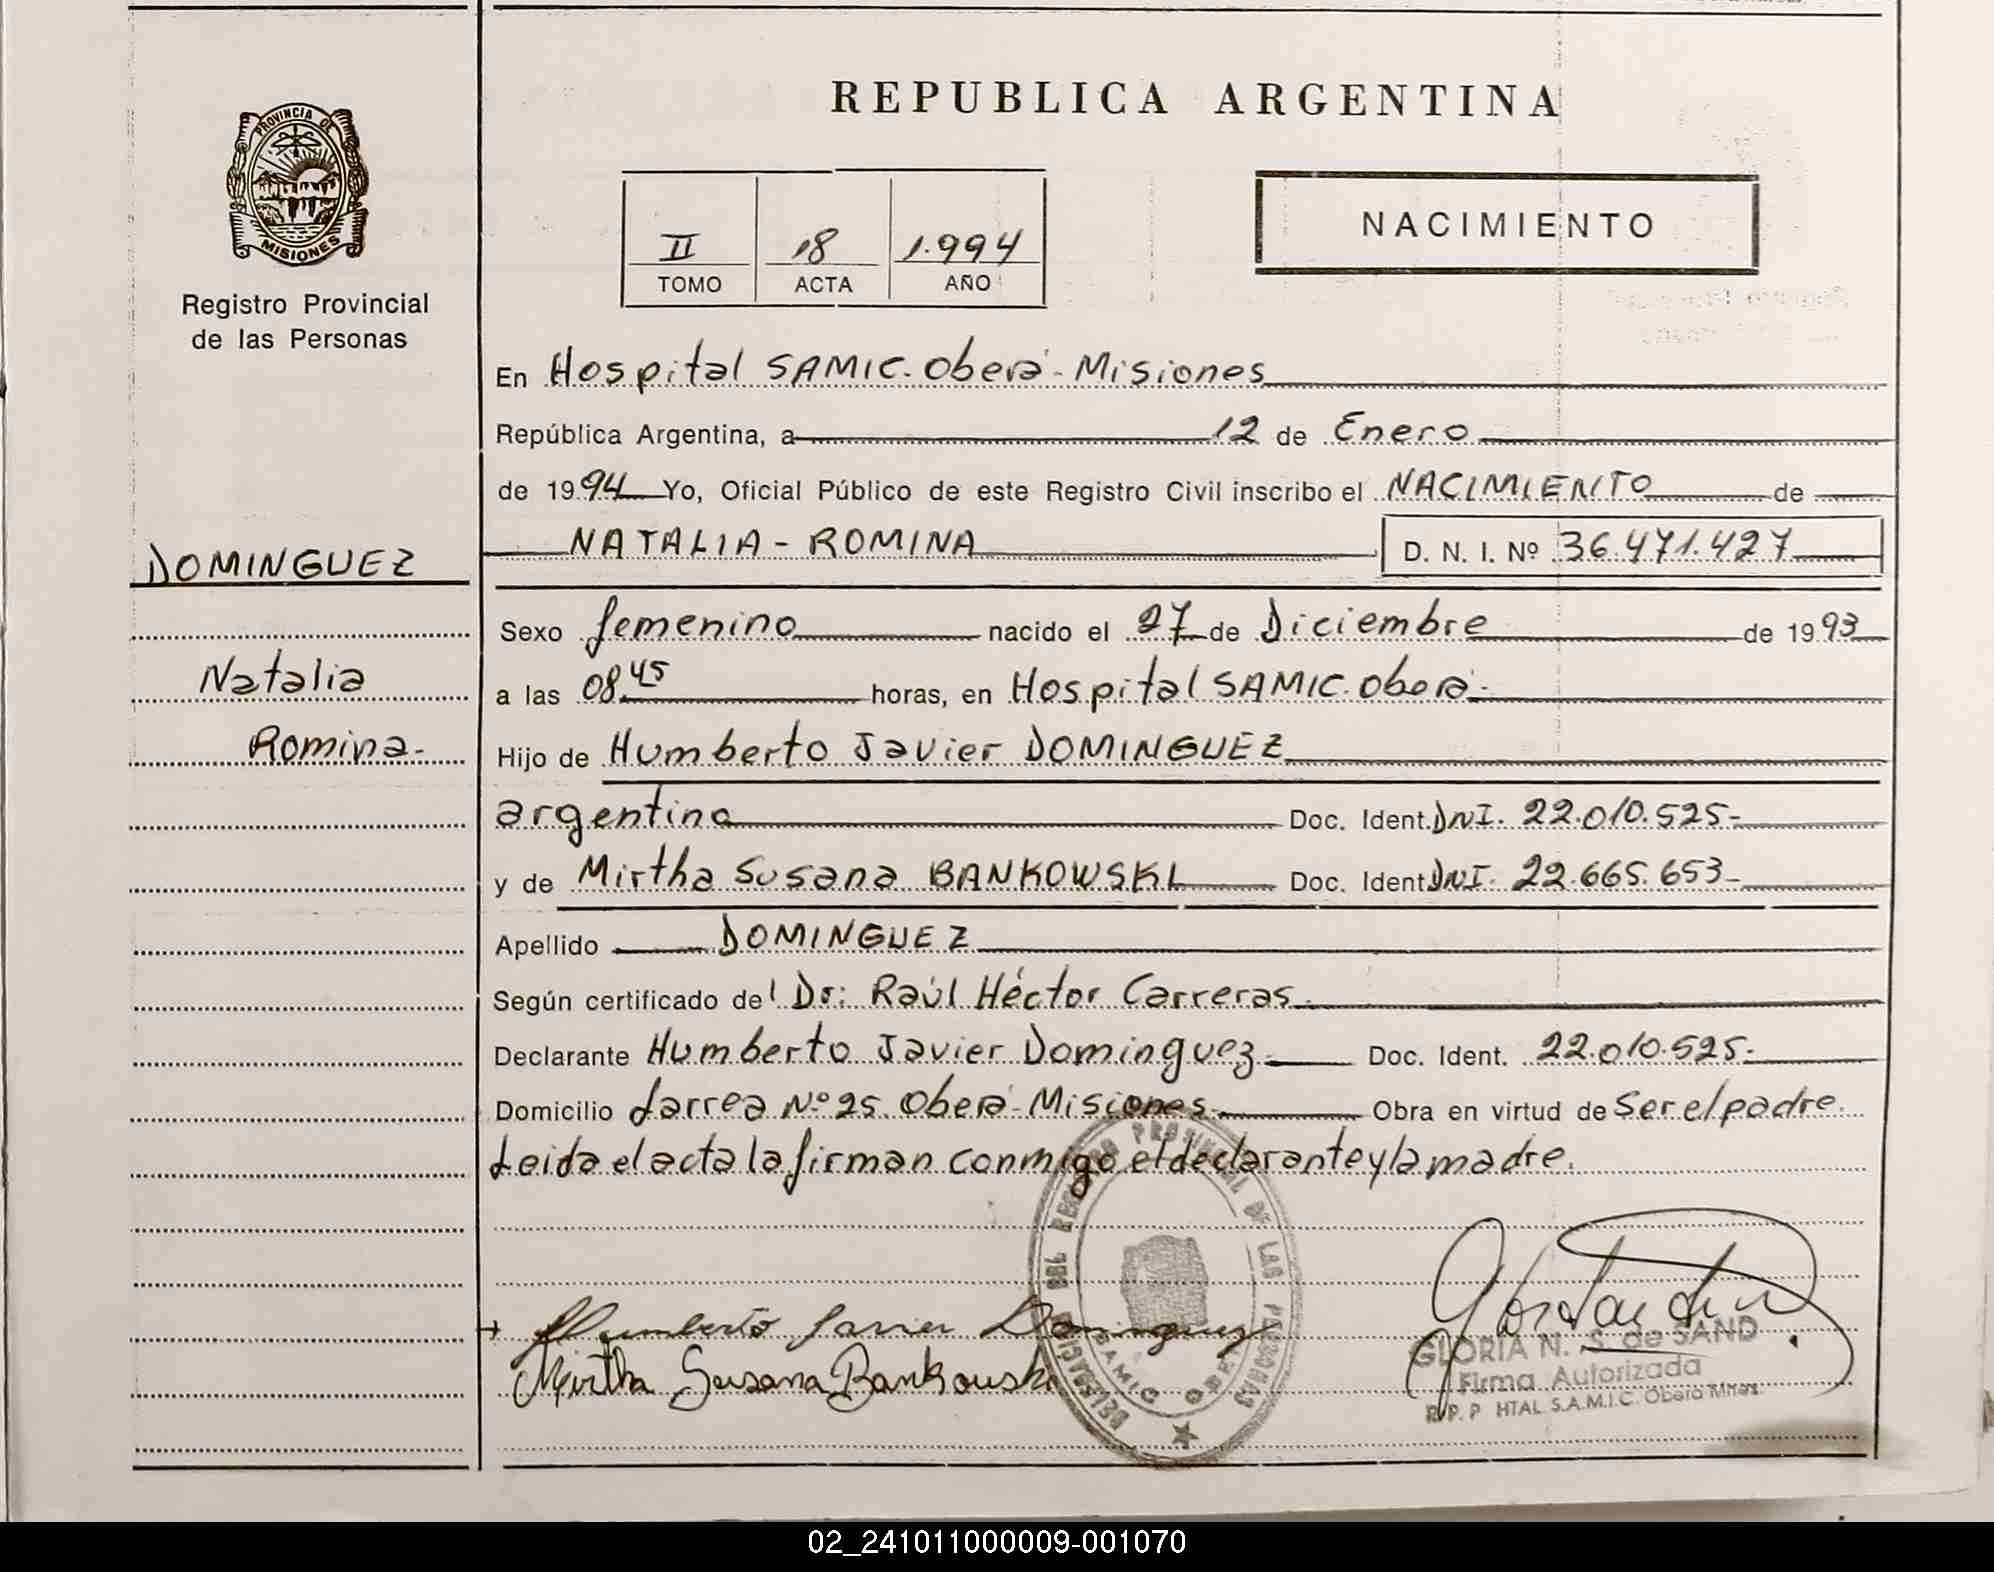 REPUBLICA ARGENTINA
PROVINCIA DE
MISIONES
Registro Provincial
de las Personas
II 18 1.994
TOMO ACTA AÑO
NACIMIENTO
En Hospital SAMIC. Oberá - Misiones
República Argentina, a 12 de Enero
de 1994 Yo, Oficial Público de este Registro Civil inscribo el NACIMIENTO de
NATALIA - ROMINA D. N. I. Nº 36.471.427
DOMINGUEZ
Natalia
Romina.-
Sexo femenino nacido el 27 de Diciembre de 1993
a las 08.45 horas, en Hospital SAMIC. Oberá.-
Hijo de Humberto Javier DOMINGUEZ
argentino Doc. Ident. DNI. 22.010.525.-
y de Mirtha Susana BANKOWSKI Doc. Ident. DNI. 22.665.653.-
Apellido DOMINGUEZ
Según certificado del Dr: Raúl Héctor Carreras.
Declarante Humberto Javier Dominguez Doc. Ident. 22.010.525.-
Domicilio Larrea Nº 25. Oberá - Misiones Obra en virtud de Ser el padre.
Leida el acta la firman conmigo el declarante y la madre.
Humberto Javier Dominguez
Mirtha Susana Bankowski
DELEGACION DEL REGISTRO PROVINCIAL DE LAS PERSONAS
SAMIC OBERA
GLORIA N. S. de SAND
Firma Autorizada
R.P.P. HTAL S.A.M.I.C. Oberá Mnes.
02_241011000009-001070